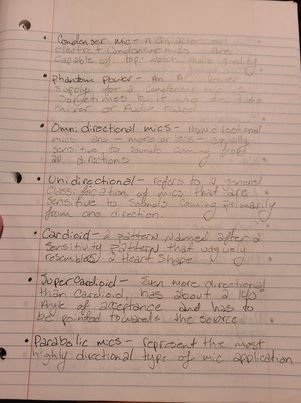 • Condenser mic - A capacitors and
electret condenser mics are
capable of top-notch audio quality
• Phantom Power - An AC Power
Supply for a condenser mic is
sometimes built into an audio
mixer or Audio board
• Omnidirectional mics - Nondirectional
mics are - more or less - equally
sensitive to sounds coming from
all directions
• Unidirectional - refers to a general
classification of mics that are
sensitive to sounds coming primarily
from one direction.
• Cardioid - a pattern named after a
sensitivity pattern that vaguely
resembles a Heart Shape
• SuperCardioid - Even more directional
than Cardioid, has about a 140°
Angle of acceptance and has to
be pointed towards the source
• Parabolic mics - represent the most
highly directional type of mic application